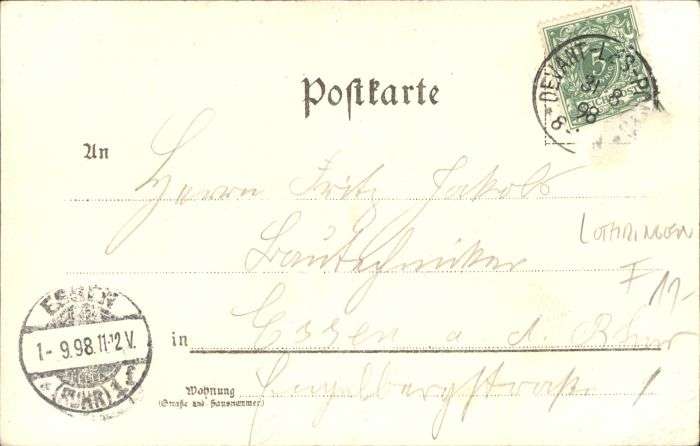 Postkarte
5
DEVANT-LES-PONTS
31 8
98
8-
An
Herrn Fritz Jakobs
Bautechniker
LOTHRINGEN
17-
ESSEN
1- 9.98.11-12V.
*(RUHR)1f
in Essen a. d. Ruhr
Wohnung
(Straße und Hausnummer)
Engelbergstraße 1